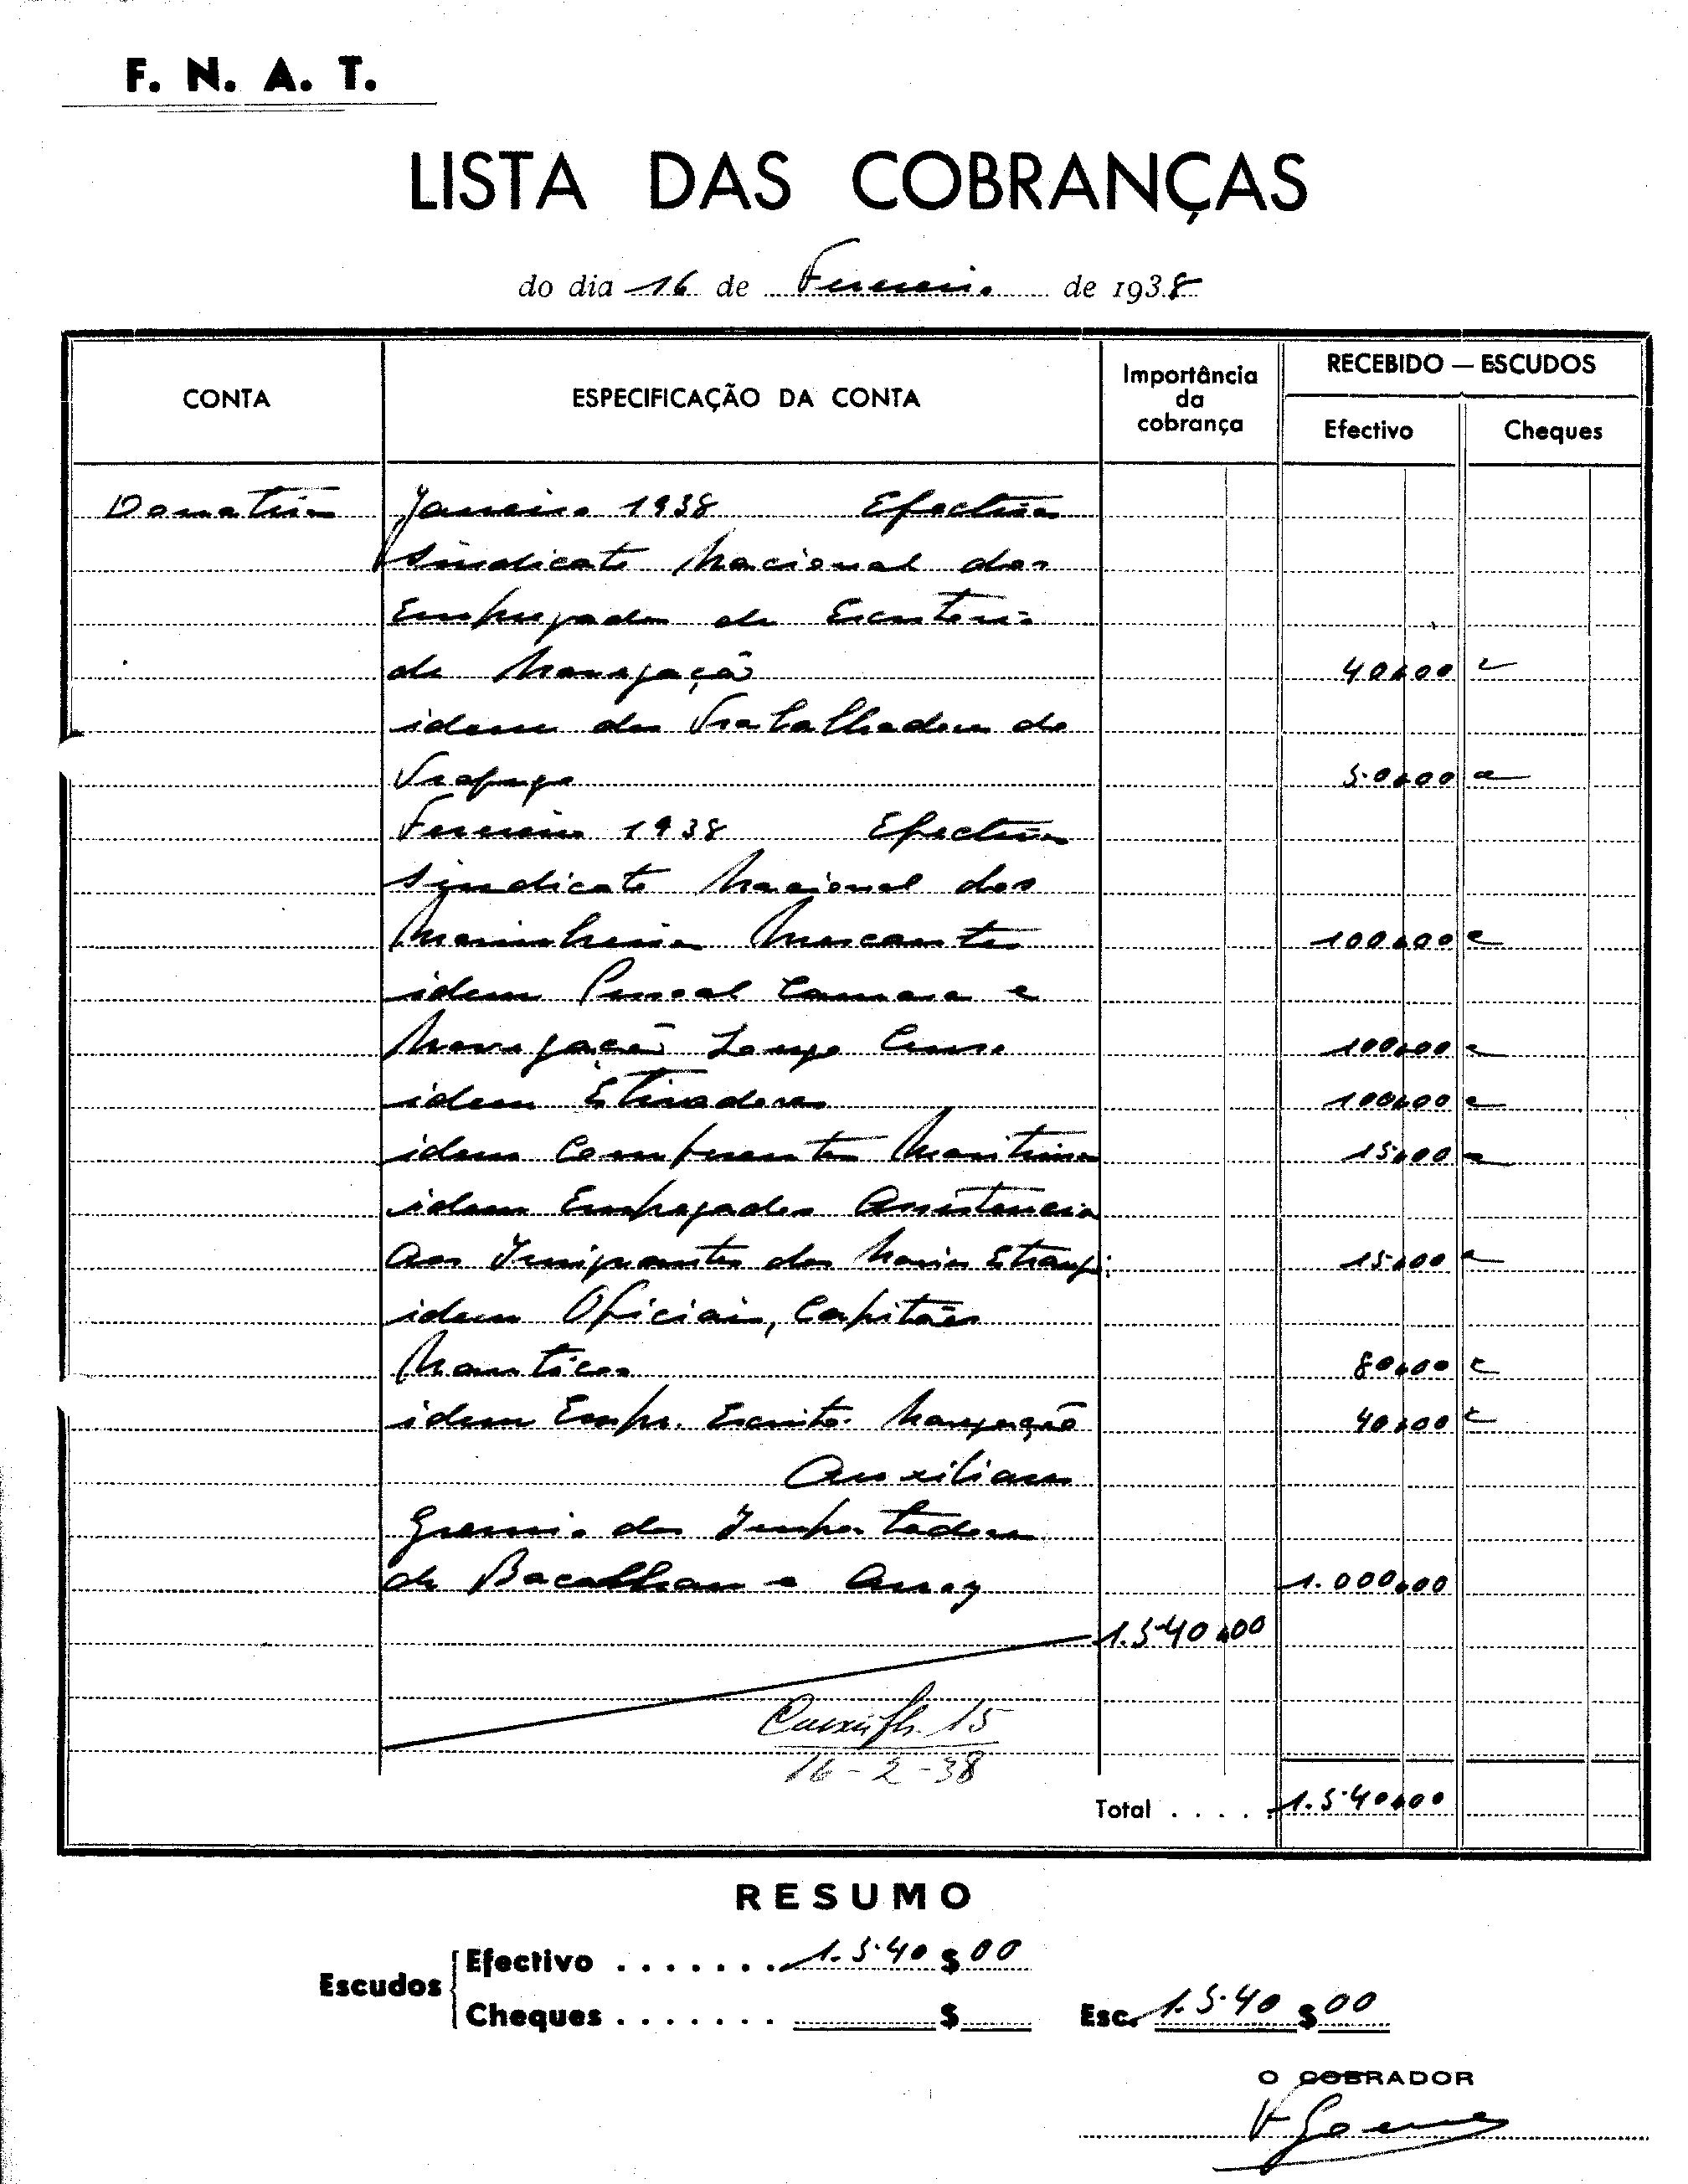 F. N. A. T.
LISTA DAS COBRANÇAS
do dia 16 de Fevereiro de 1938
CONTA
ESPECIFICAÇÃO DA CONTA
Importância
da
cobrança
RECEBIDO — ESCUDOS
Efectivo
Cheques
Donativos Janeiro 1938 Efectivos
Sindicato Nacional dos
Empregados de Escritorio
de Navegação 40$00
idem dos Trabalhadores do
Trafego 50$00
Fevereiro 1938 Efectivos
Sindicato Nacional dos
Marinheiros Mercantes 100$00
idem Pessoal Camara e
Navegação Longo Curso 100$00
idem Estivadores 100$00
idem Conferentes Maritimos 15$00
idem Empregados Assistencia
aos Imigrantes dos Navios Estrang. 15$00
idem Oficiais, Capitães
Nauticos 80$00
idem Emp. Escrito. Navegação 40$00
Auxiliares
Gremio dos Importadores
de Bacalhau e Arroz 1.000$00
1.540$00
Caixa fls. 15
16-2-38
Total . . . . . 1.540$00
RESUMO
Escudos
Efectivo . . . . . . . 1.540 $ 00
Cheques . . . . . . . $
Esc. 1.540 $ 00
O COBRADOR